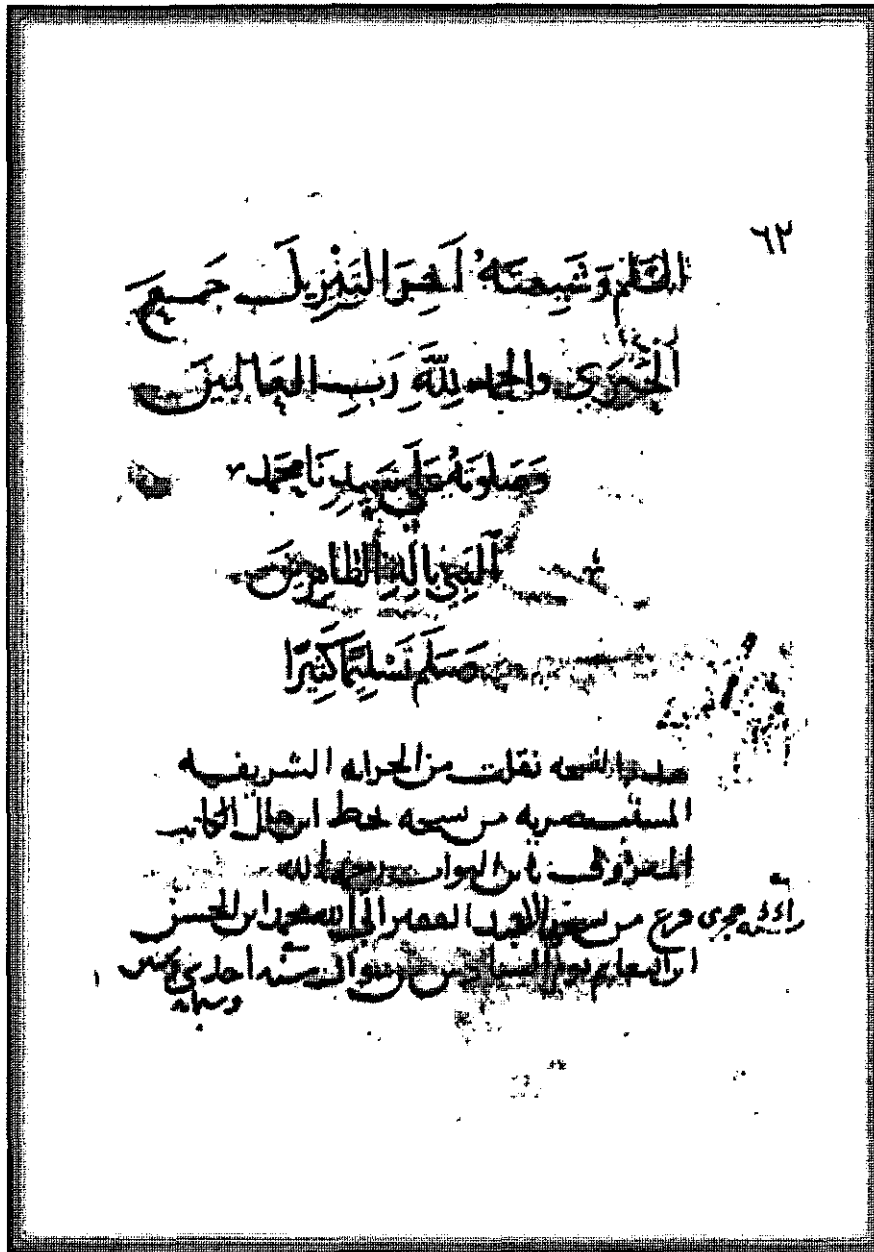 ٦٢
السَّلَم وَشِيعته آخِرَ التنزيل جَمعَ
الحبري والحمد لِلَّهِ رَبِ العَالمينَ
وَصَلوتهُ عَلَى سَيدِنَا محمد
النَبيِ وَالِهِ الطَاهِرينَ
وَسَلَم تَسْلِيمًا كَثِيرًا
هذه النسخه نقلت من الخزانه الشريفه
المستنصريه من نسخه بخط ابن هلال الكاتب
المعروف بابن البواب رحمه الله
فرغ من نسخها العبد الفقير الى الله محمد ابن الحسن
ابن يوم السادس من شوال سنه احدى
وستمائه